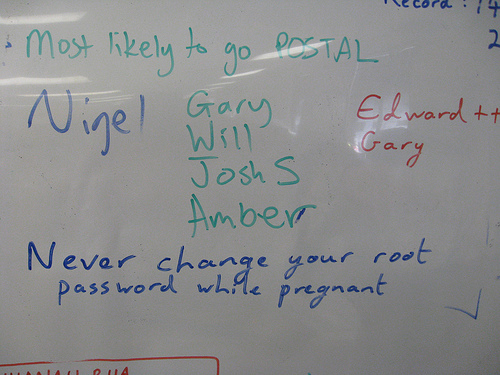 Record : 14
2
Most likely to go POSTAL
Nigel Gary Edward ++
Will Gary
Josh S
Amber
Never change your root
password while pregnant